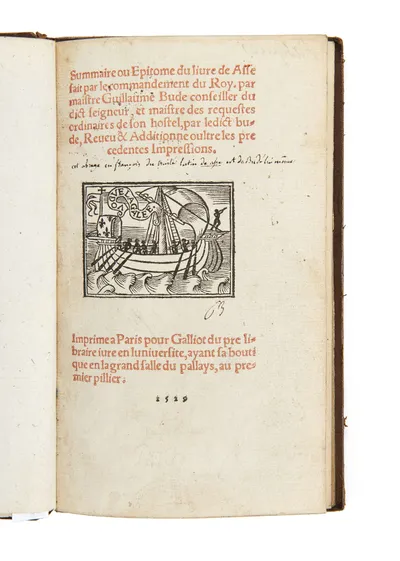 Summaire ou Epitome du liure de Asse
fait par le commandement du Roy, par
maistre Guillaume Bude conseiller du
dict seigneur, et maistre des requestes
ordinaires de son hostel, par ledict bu-
de, Reueu & Additionne oultre les pre
cedentes Impressions.
cet abrege en françois du latin de asse est de Bude lui même
VOGUE
GUALEE
63
Imprime a Paris pour Galliot du pre li-
braire iure en luniuersite, ayant sa bouti
que en la grand salle du pallays, au pre-
mier pillier.
1529